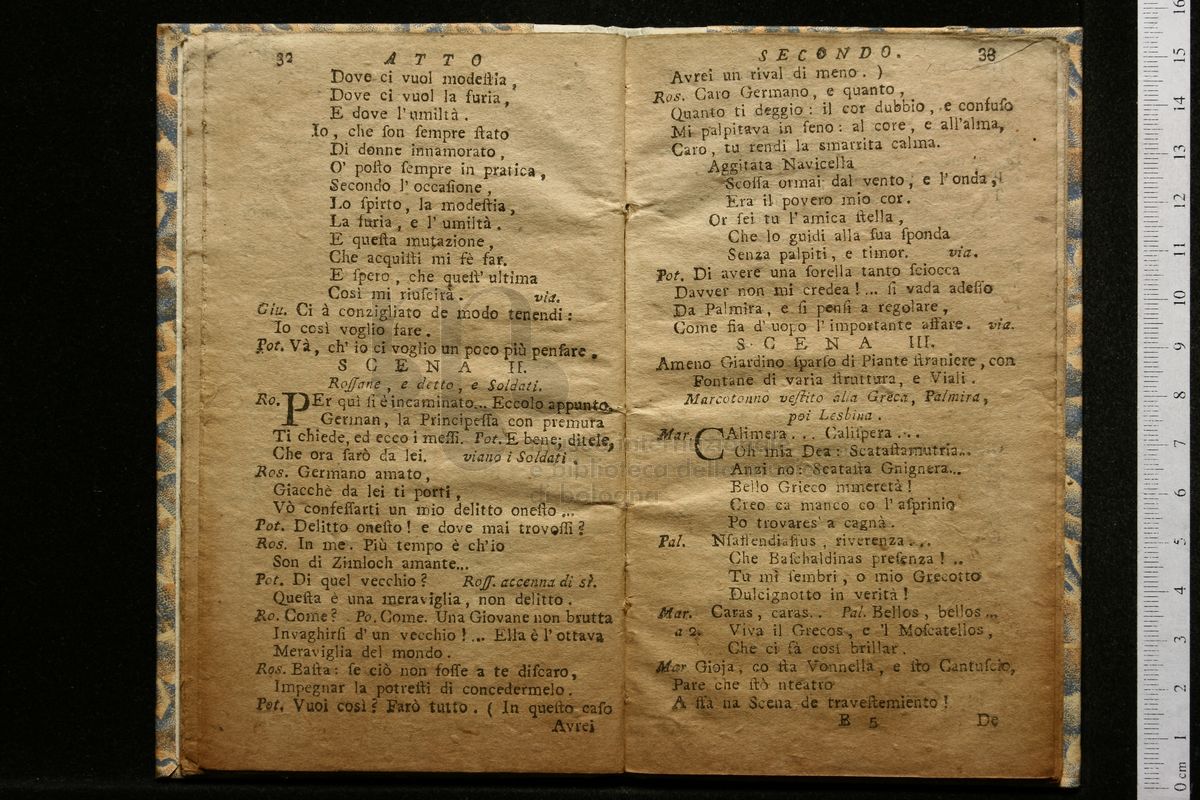 32 ATTO
Dove ci vuol modeſtia,
Dove ci vuol la furia,
E dove l'umiltà.
Io, che ſon ſempre ſtato
Di donne innamorato,
O' poſto ſempre in pratica,
Secondo l' occaſione,
Lo ſpirto, la modeſtia,
La furia, e l' umiltà.
E queſta mutazione,
Che acquiſti mi fè far.
E ſpero, che queſt' ultima
Così mi riuſcirà. via.
Giu. Ci à conzigliato de modo tenendi:
Io così voglio fare.
Pot. Và, ch' io ci voglio un poco più penſare.
SCENA II.
Roſſane, e detto, e Soldati.
Ro. PEr quì ſi è incaminato... Eccolo appunto,
German, la Principeſſa con premura
Ti chiede, ed ecco i meſſi. Pot. E bene; ditele,
Che ora farò da lei. viano i Soldati.
Ros. Germano amato,
Giacchè da lei ti porti,
Vò confeſſarti un mio delitto oneſto...
Pot. Delitto oneſto! e dove mai trovoſſi?
Ros. In me. Più tempo è ch'io
Son di Zimloch amante...
Pot. Di quel vecchio? Roſſ. accenna di sì.
Queſta è una meraviglia, non delitto.
Ro. Come? Po. Come. Una Giovane non brutta
Invaghirſi d' un vecchio!... Ella è l' ottava
Meraviglia del mondo.
Ros. Baſta: ſe ciò non foſſe a te diſcaro,
Impegnar la potreſti di concedermelo.
Pot. Vuoi così? Farò tutto. ( In queſto caſo
Avrei
SECONDO. 33
Avrei un rival di meno. )
Ros. Caro Germano, e quanto,
Quanto ti deggio: il cor dubbio, e confuſo
Mi palpitava in ſeno: al core, e all'alma,
Caro, tu rendi la smarrita calma.
Aggitata Navicella
Scoſſa ormai dal vento, e l' onda,
Era il povero mio cor.
Or ſei tu l' amica ſtella,
Che lo guidi alla ſua ſponda
Senza palpiti, e timor. via.
Pot. Di avere una ſorella tanto ſciocca
Davver non mi credea!... ſi vada adeſſo
Da Palmira, e ſi penſi a regolare,
Come ſia d' uopo l' importante affare. via.
SCENA III.
Ameno Giardino ſparſo di Piante ſtraniere, con
Fontane di varia ſtruttura, e Viali.
Marcotonno veſtito alla Greca, Palmira,
poi Lesbina.
Mar. CAlimera... Caliſpera...
Oh mia Dea: Scataſtamutria...
Anzi no: Scataſta Gnignera...
Bello Grieco mmeretà!
Creo ca manco co l' aſprinio
Po trovares' a cagnà.
Pal. Nſaſtendiaſius, riverenza...
Che Baſchaldinas preſenza!..
Tu mi ſembri, o mio Grecotto
Dulcignotto in verità!
Mar. Caras, caras.. Pal. Bellos, bellos...
a 2. Viva il Grecos, e 'l Moſcatellos,
Che ci fà così brillar.
Mar Gioja, co ſta Vonnella, e ſto Cantuſcio,
Pare che ſtò nteatro
A ffà na Scena de traveſtemiento!
B 5 De